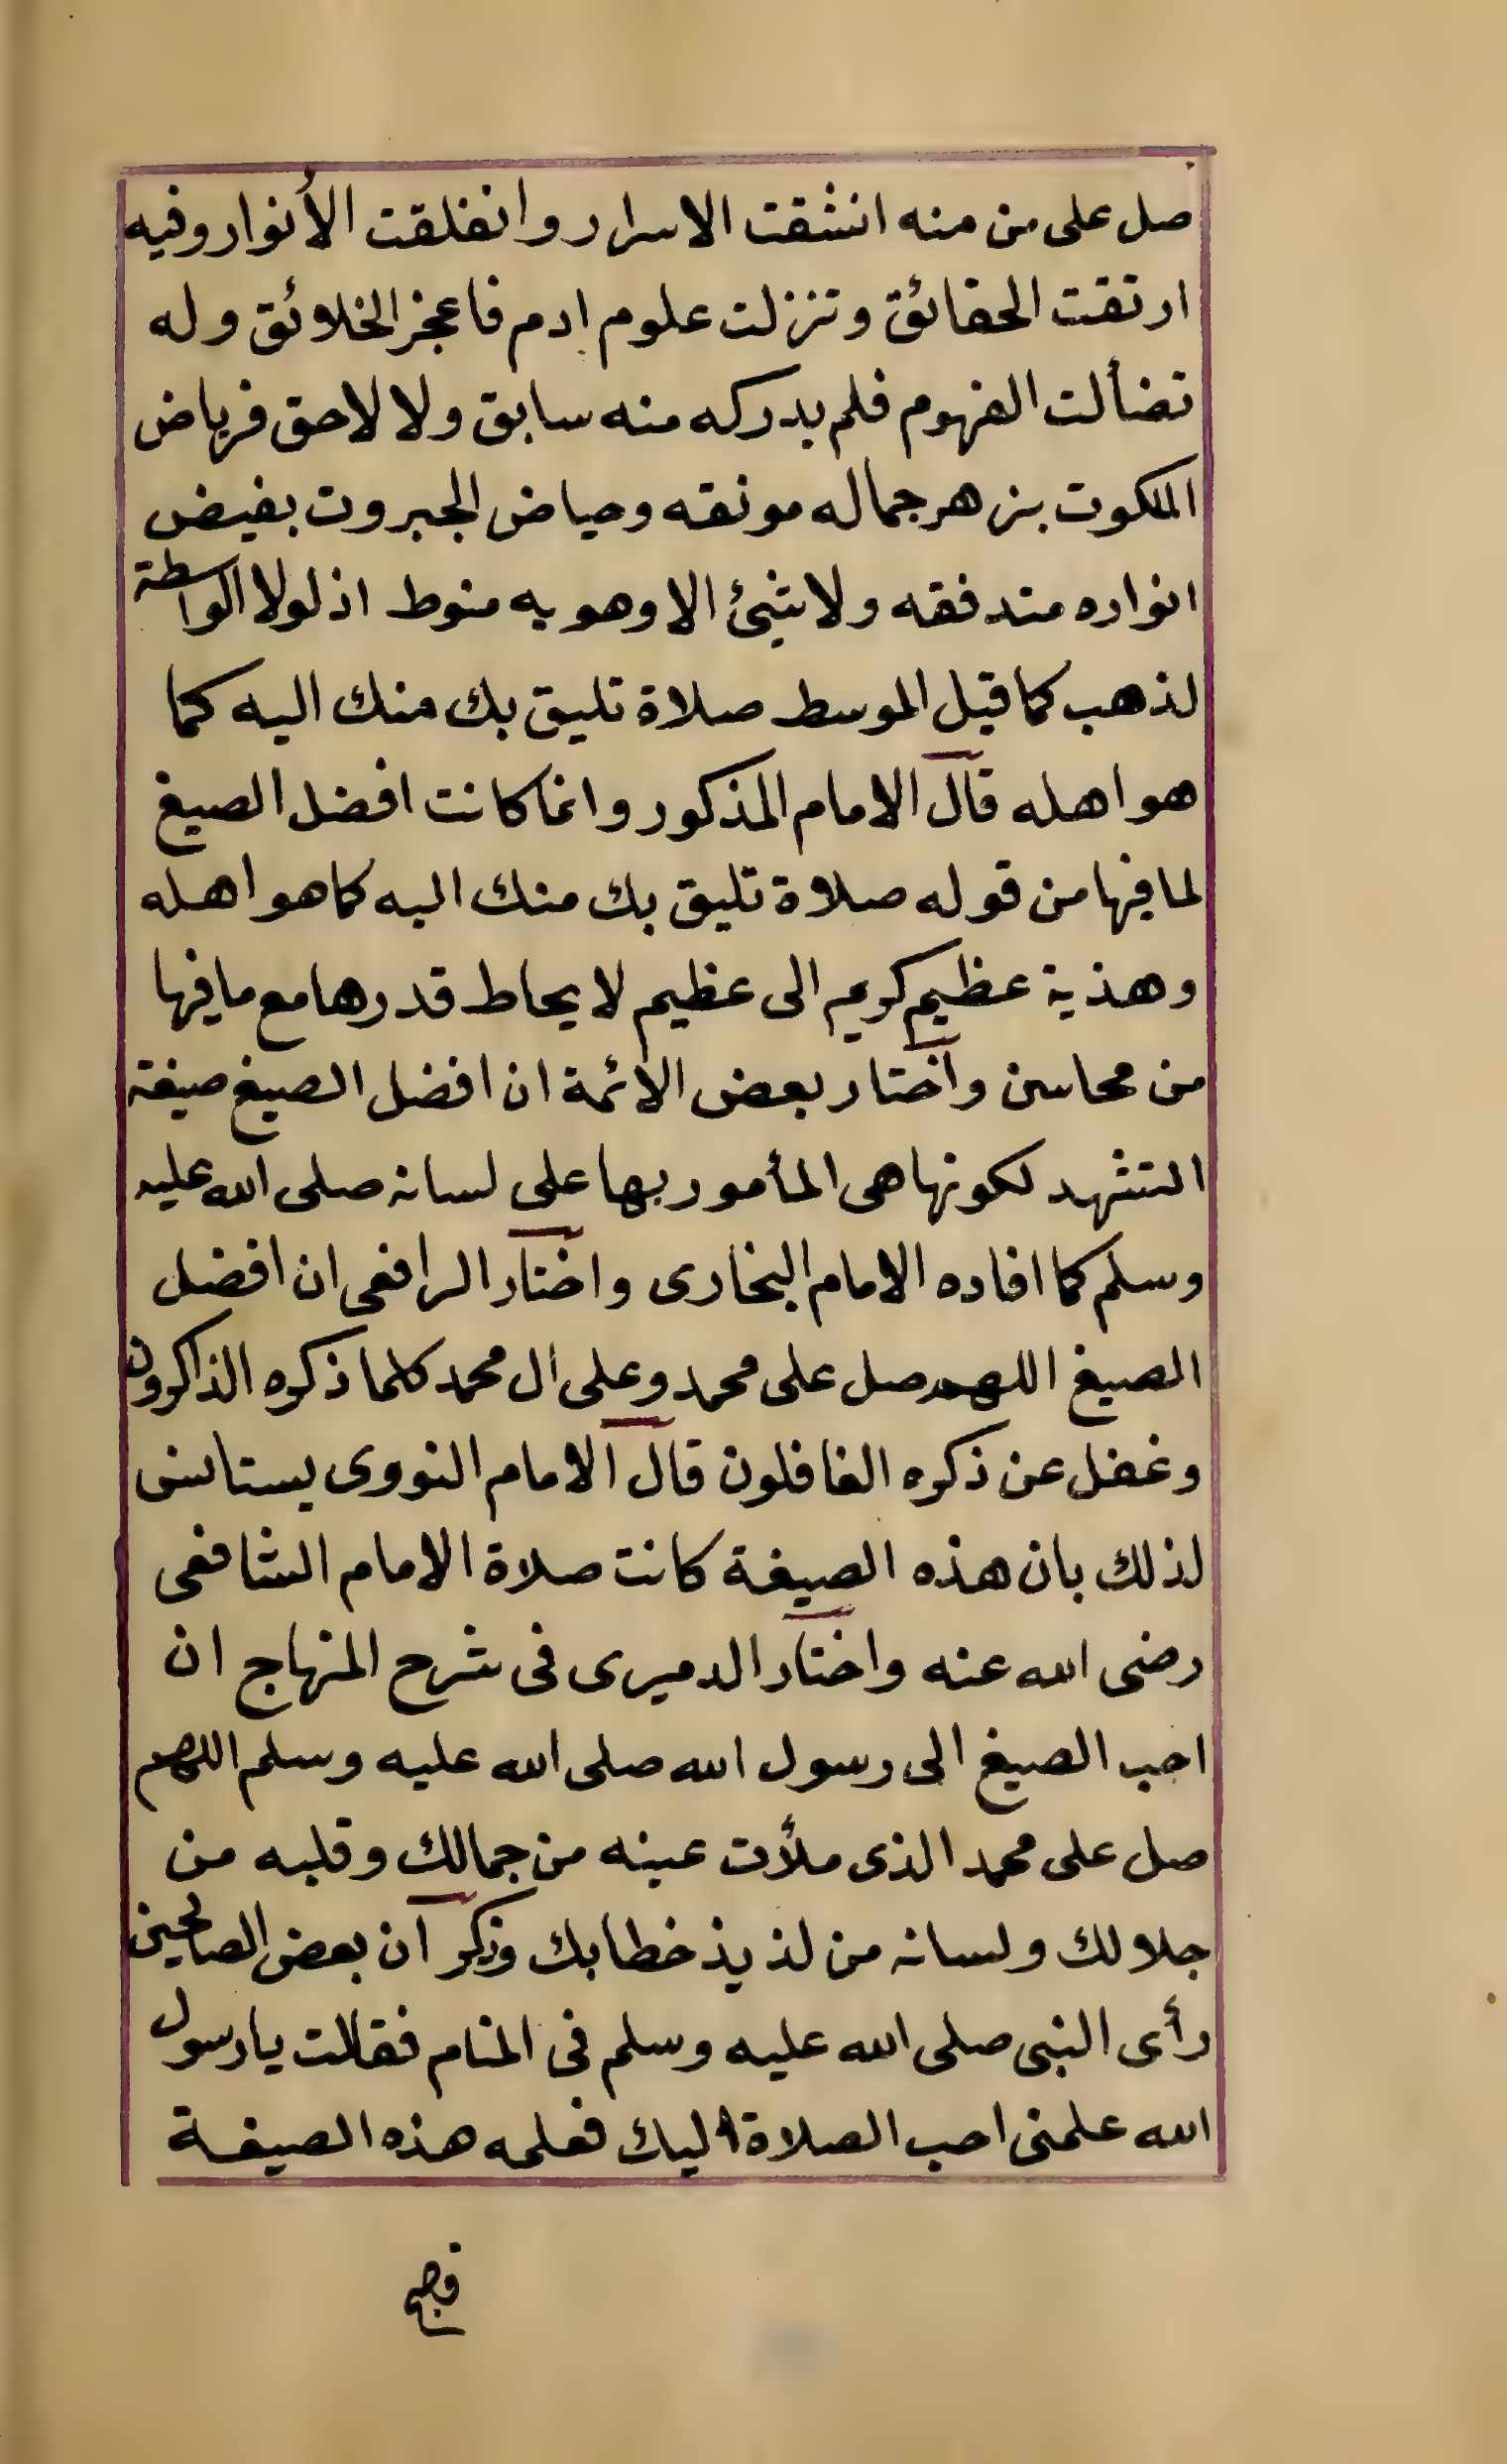 صل على من منه انشقت الاسرار وانفلقت الأنوار وفيه
ارتقت الحقائق وتنزلت علوم ادم فاعجز الخلائق وله
تضألت الفهوم فلم يدركه منه سابق ولا لاحق فرياض
الملكوت بزهر جماله مونقه وحياض الجبروت بفيض
انواره متدفقه ولا شيئ الا وهو به منوط اذ لولا الواسطة
لذهب كما قيل الموسط صلاة تليق بك منك اليه كما
هو اهله قال الامام المذكور وانما كانت افضل الصيغ
لما فيها من قوله صلاة تليق بك منك اليه كما هو اهله
وهذية عظيم كريم الى عظيم لا يحاط قدرها مع ما فيها
من محاسن واختار بعض الائمة ان افضل الصيغ صيغة
التشهد لكونها هى المأمور بها على لسانه صلى الله عليه
وسلم كما افاده الامام البخارى واختار الرافعى ان افضل
الصيغ اللهم صل على محمد وعلى أل محمد كلما ذكره الذاكرون
وغفل عن ذكره الغافلون قال الامام النووى يستانس
لذلك بان هذه الصيغة كانت صلاة الامام الشافعى
رضى الله عنه واختار الدميرى فى شرح المنهاج ان
احب الصيغ الى رسول الله صلى الله عليه وسلم اللهم
صل على محمد الذى ملأت عينه من جمالك وقلبه من
جلالك ولسانه من لذيذ خطابك وذكر ان بعض الصالحين
رأى النبى صلى الله عليه وسلم فى المنام فقالت يا رسول
الله علمنى احب الصلاة اليك فعلمه هذه الصيغة